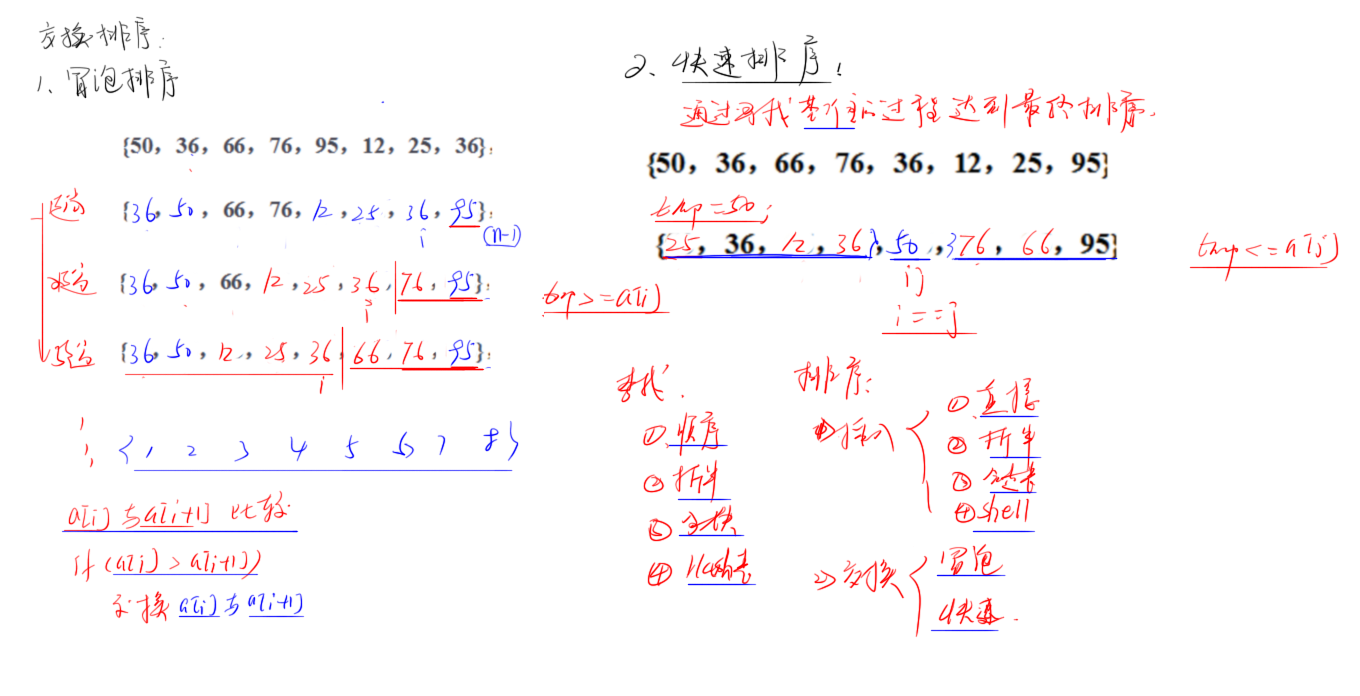 交换排序:
1、冒泡排序
{50, 36, 66, 76, 95, 12, 25, 36};
{36, 50, 66, 76, 12, 25, 36, 95};
i (n-1)
{36, 50, 66, 12, 25, 36, 76, 95};
i
{36, 50, 12, 25, 36, 66, 76, 95};
i
{1 2 3 4 5 6 7 8}
a[i]与a[i+1] 比较
if (a[i] > a[i+1])
交换 a[i] 与 a[i+1]
2、快速排序:
通过寻找基准的过程达到最终排序.
{50, 36, 66, 76, 36, 12, 25, 95}
tmp=50;
{25, 36, 12, 36}, 50, {76, 66, 95]
tmp<=a[j]
tmp>=a[i]
ij
i==j
查找.
① 顺序
② 折半
③ 分块
④ Hash表
排序:
1) 插入
① 直接
② 折半
③
④ shell
2) 交换
冒泡
快速.